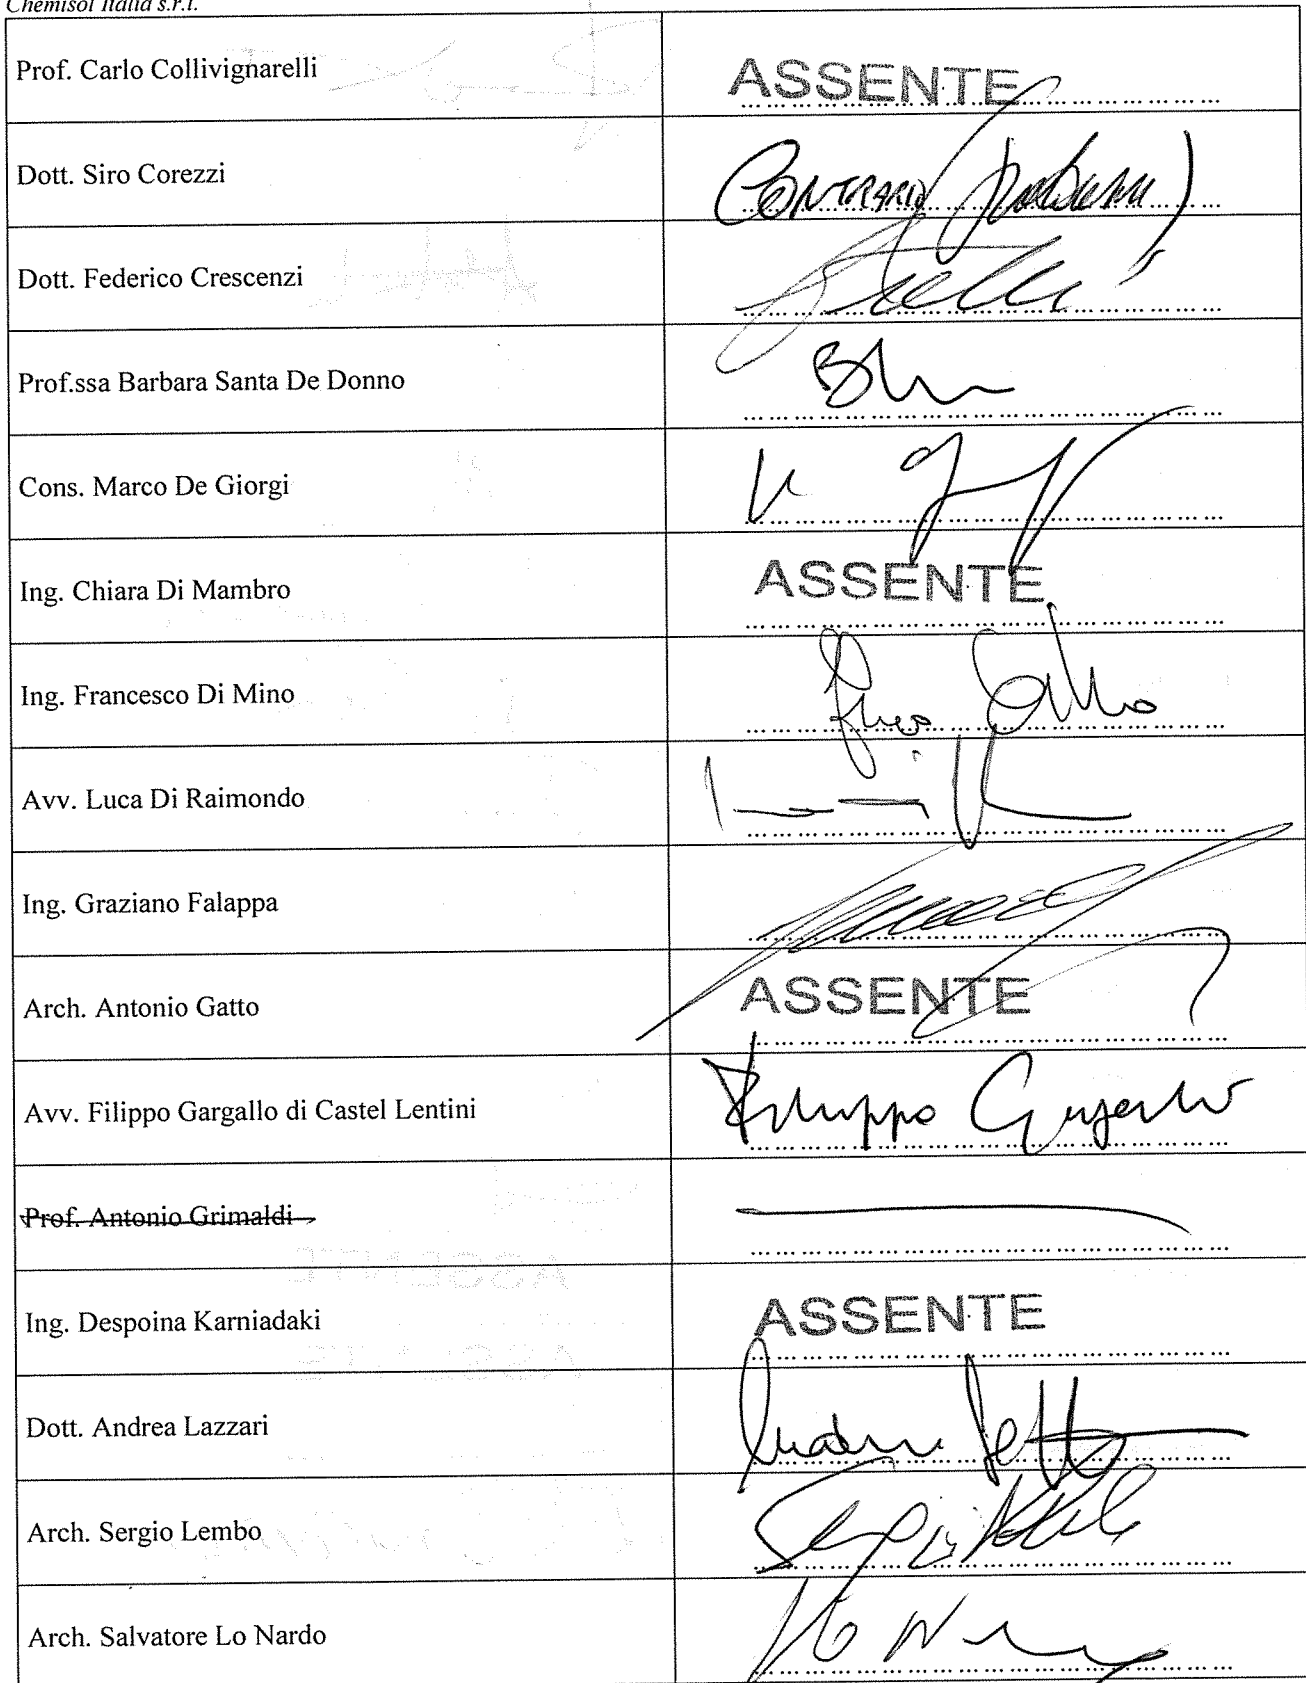 Chemisol Italia s.r.l.
Prof. Carlo Collivignarelli
ASSENTE
Dott. Siro Corezzi
CONTRARIO
Dott. Federico Crescenzi
Prof.ssa Barbara Santa De Donno
Cons. Marco De Giorgi
Ing. Chiara Di Mambro
ASSENTE
Ing. Francesco Di Mino
Avv. Luca Di Raimondo
Ing. Graziano Falappa
Arch. Antonio Gatto
ASSENTE
Avv. Filippo Gargallo di Castel Lentini
Filippo Gargallo
Prof. Antonio Grimaldi
Ing. Despoina Karniadaki
ASSENTE
Dott. Andrea Lazzari
Arch. Sergio Lembo
Arch. Salvatore Lo Nardo